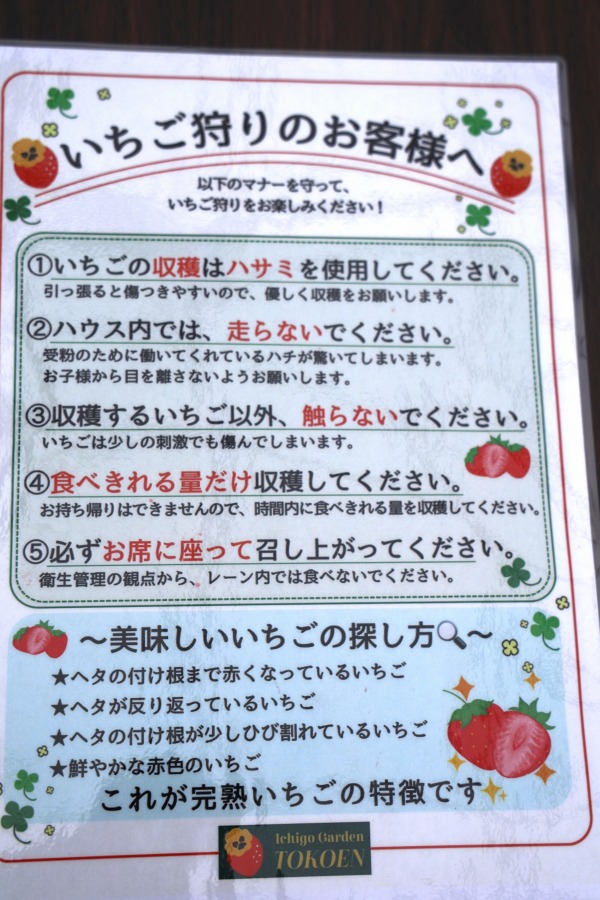 いちご狩りのお客様へ
以下のマナーを守って、
いちご狩りをお楽しみください！
①いちごの収穫はハサミを使用してください。
引っ張ると傷つきやすいので、優しく収穫をお願いします。
②ハウス内では、走らないでください。
受粉のために働いてくれているハチが驚いてしまいます。
お子様から目を離さないようお願いします。
③収穫するいちご以外、触らないでください。
いちごは少しの刺激でも傷んでしまいます。
④食べきれる量だけ収穫してください。
お持ち帰りはできませんので、時間内に食べきれる量を収穫してください。
⑤必ずお席に座って召し上がってください。
衛生管理の観点から、レーン内では食べないでください。
～美味しいいちごの探し方🔍～
★ヘタの付け根まで赤くなっているいちご
★ヘタが反り返っているいちご
★ヘタの付け根が少しひび割れているいちご
★鮮やかな赤色のいちご
これが完熟いちごの特徴です✨
Ichigo Garden
TOKOEN